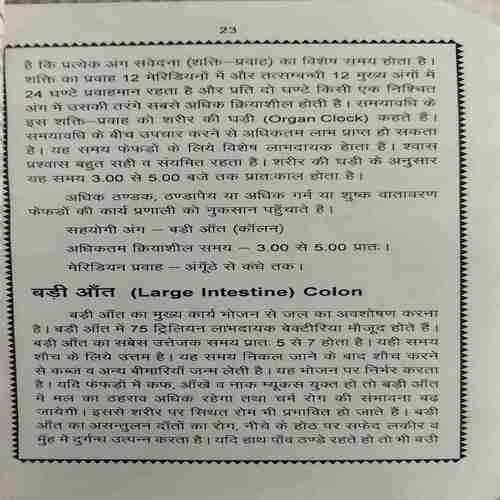 23
है कि प्रत्येक अंग संवेदना (शक्ति–प्रवाह) का विशेष समय होता है।
शक्ति का प्रवाह 12 मेरिडियनों में और तत्सम्बन्धी 12 मुख्य अंगों में
24 घण्टे प्रवाहमान रहता है और प्रति दो घण्टे किसी एक निश्चित
अंग में उसकी तरंगे सबसे अधिक क्रियाशील होती है। समयावधि के
इस शक्ति–प्रवाह को शरीर की घड़ी (Organ Clock) कहते हैं।
समयावधि के बीच उपचार करने से अधिकतम लाभ प्राप्त हो सकता
है। यह समय फेफडों के लिये विशेष लाभदायक होता है। श्वास
प्रश्वास बहुत सही व संयमित रहता है। शरीर की घड़ी के अनुसार
यह समय 3.00 से 5.00 बजे तक प्रातःकाल होता है।
अधिक ठण्डक, ठण्डापेय या अधिक गर्म या शुष्क वातावरण
फेफडों की कार्य प्रणाली को नुकसान पहुँचाते है।
सहयोगी अंग – बड़ी आँत (कॉलन)
अधिकतम क्रियाशील समय – 3.00 से 5.00 प्रातः।
मेरिडियन प्रवाह – अंगूँठे से कंधे तक।
बड़ी आँत (Large Intestine) Colon
बड़ी आँत का मुख्य कार्य भोजन से जल का अवशोषण करना
है। बड़ी आँत में 75 ट्रिलियन लाभदायक बेक्टीरिया मौजूद होते हैं।
बड़ी आँत का सबेस उत्तेजक समय प्रातः 5 से 7 होता है। यही समय
शौच के लिये उत्तम है। यह समय निकल जाने के बाद शौच करने
से कब्ज व अन्य बीमारियाँ जन्म लेती है। यह भोजन पर निर्भर करता
है। यदि फेफडों में कफ, आँखें व नाक म्यूकस युक्त हो तो बड़ी आँत
में मल का ठहराव अधिक रहेगा तथा चर्म रोग की संभावना बढ़
जायेगी। इससे शरीर पर स्थित रोम भी प्रभावित हो जाते हैं। बड़ी
आँत का असन्तुलन दाँतों का रोग, नीचे के होठ पर सफेद लकीर व
मुंह में दुर्गन्ध उत्पन्न करता है। यदि हाथ पाँव ठण्डे रहते हो तो भी बड़ी